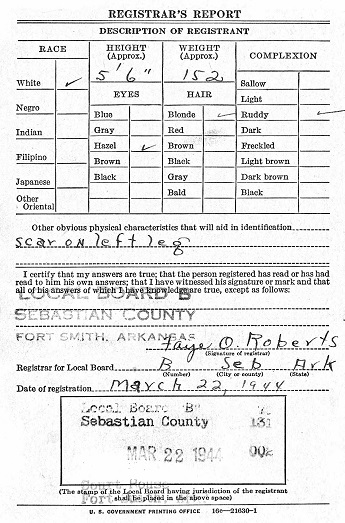 REGISTRAR'S REPORT
DESCRIPTION OF REGISTRANT
RACE
HEIGHT (Approx.)
WEIGHT (Approx.)
COMPLEXION
5' 6"
152
White ✓
EYES
HAIR
Sallow
Light
Negro
Blue
Blonde ✓
Ruddy ✓
Indian
Gray
Red
Dark
Hazel ✓
Brown
Freckled
Filipino
Brown
Black
Light brown
Japanese
Black
Gray
Dark brown
Other Oriental
Bald
Black
Other obvious physical characteristics that will aid in identification
scar on left leg
I certify that my answers are true; that the person registered has read or has had
read to him his own answers; that I have witnessed his signature or mark and that
all of his answers of which I have knowledge are true, except as follows:
LOCAL BOARD B
SEBASTIAN COUNTY
FORT SMITH, ARKANSAS
Faye O. Roberts
(Signature of registrar)
Registrar for Local Board B Seb Ark
(Number) (City or county) (State)
Date of registration March 22, 1944
Local Board "B"
Sebastian County 131
MAR 22 1944 00
Court House
Fort
(The stamp of the Local Board having jurisdiction of the registrant
shall be placed in the above space)
U. S. GOVERNMENT PRINTING OFFICE 16c—21630-1